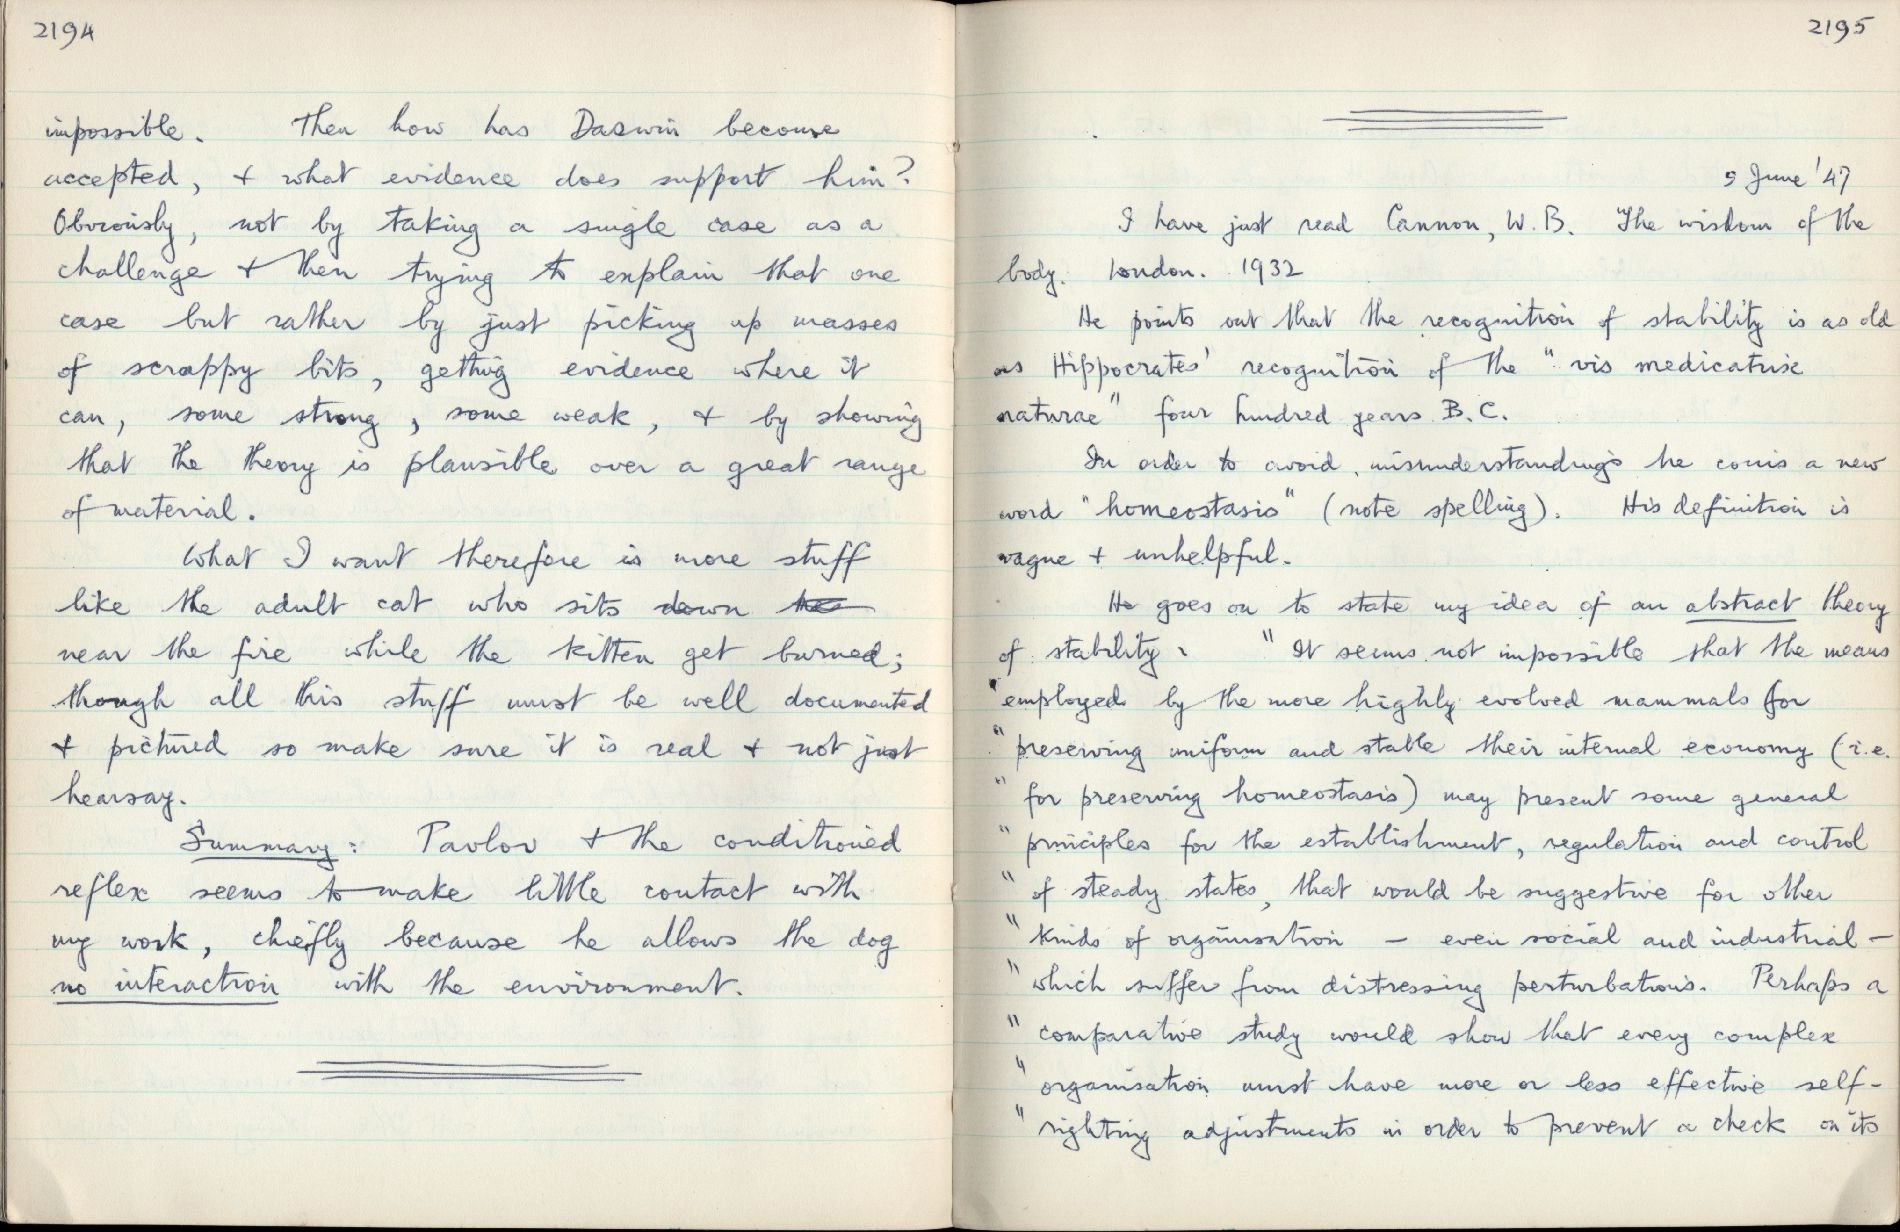 2194
impossible. Then how has Darwin become
accepted, & what evidence does support him?
Obviously, not by taking a single case as a
challenge & then trying to explain that one
case but rather by just picking up masses
of scrappy bits, getting evidence where it
can, some strong, some weak, & by showing
that the theory is plausible over a great range
of material.
What I want therefore is more stuff
like the adult cat who sits down
near the fire while the kitten get burned;
though all this stuff must be well documented
& pictured so make sure it is real & not just
hearsay.
Summary: Pavlov & the conditioned
reflex seems to make little contact with
my work, chiefly because he allows the dog
no interaction with the environment.
2195
5 June '47
I have just read Cannon, W.B. The wisdom of the
body. London. 1932
He points out that the recognition of stability is as old
as Hippocrates' recognition of the "vis medicatrix
naturae" four hundred years B.C.
In order to avoid misunderstandings he coins a new
word "homeostasis" (note spelling). His definition is
vague & unhelpful.
He goes on to state my idea of an abstract theory
of stability. "It seems not impossible that the means
"employed by the more highly evolved mammals for
"preserving uniform and stable their internal economy (i.e.
"for preserving homeostasis) may present some general
"principles for the establishment, regulation and control
"of steady states, that would be suggestive for other
"kinds of organisation — even social and industrial —
"which suffer from distressing perturbations. Perhaps a
"comparative study would show that every complex
"organisation must have more or less effective self-
"righting adjustments in order to prevent a check on its